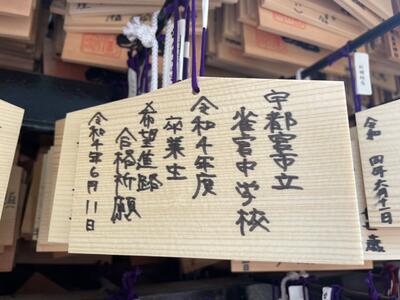 宇都宮市立
雀宮中学校
令和4年度
卒業生
希望進路
合格祈願
令和4年6月11日
令和四年六月十一日